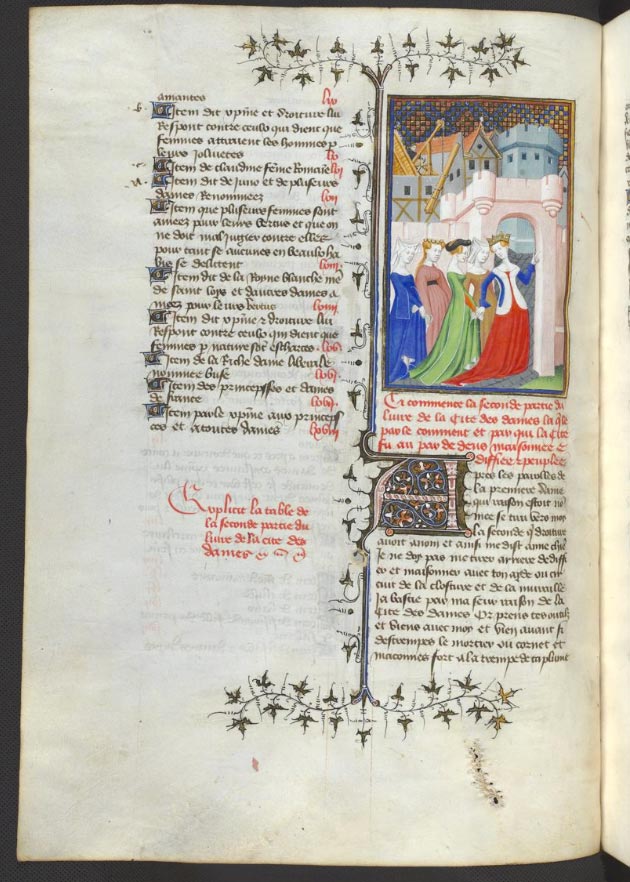 amantes lxv
Item dit xpine et droiture lui
Respont contre ceulx qui dient que
femmes attraient les hommes p
leurs Jolivetes lv
Item de claudine feme Romaie lvi
Item dit de Juno et de plusieurs
dames Renommees lvii
Item que plusieurs femmes sont
amees pour leurs vertus et que on
ne doit mal Jugier contre elles
pour tant se aucunes en beaulx ha
bis se delitent
Item dit de la Royne blanche me
de saint loys et dautres dames a
mees pour leurs vertus
Item dit xpine & droiture lui
Respont contre ceulx qui dient que
femmes p nature sont escharces
Item de la Riche dame liberale
nommee buse
Item des princepsses et dames
de france
Item parle xpine aux princeps
ces et a toutes dames
Explicit la table de
la seconde partie du
livre de la cite des
dames
Cy commence la seconde partie du
livre de la Cite des dames la qle
parle comment et par qui la Cite
fu au par de dens maisonnee &
ediffiee & peuplee
Apres les paroles de
la premiere dame
qui raison estoit no
mee se tira vers moy
la seconde q droiture
avoit a nom et ainsi me dist amie chie
Je ne doy pas me tirer arriere de ediff
er et maisonner avec ton ayde ou cir
cuit de la closture et de la muraille
Ja bastie par ma seur raison de la
Cite des dames Or prens tes oustilz
et viens avec moy et vien avant si
destrempes le mortier ou cornet et
maconnes fort a la trempe de ta plume